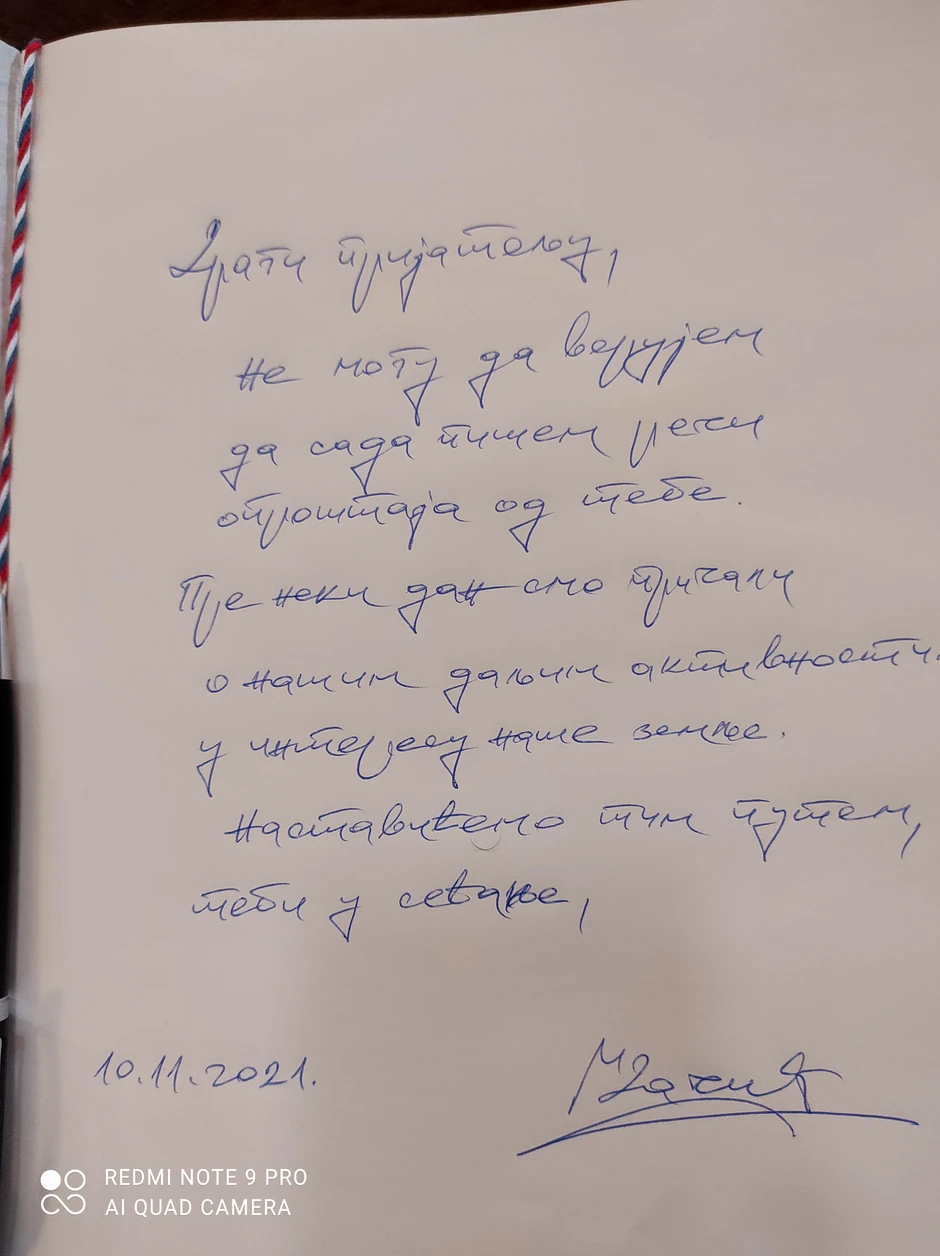 Драги пријатељу,
не могу да верујем
да сада пишем речи
опроштаја од тебе.
Пре неки дан смо причали
о нашим даљим активности
у интересу наше земље.
Наставићемо тим путем,
теби у сећање,
10.11.2021.
REDMI NOTE 9 PRO
AI QUAD CAMERA